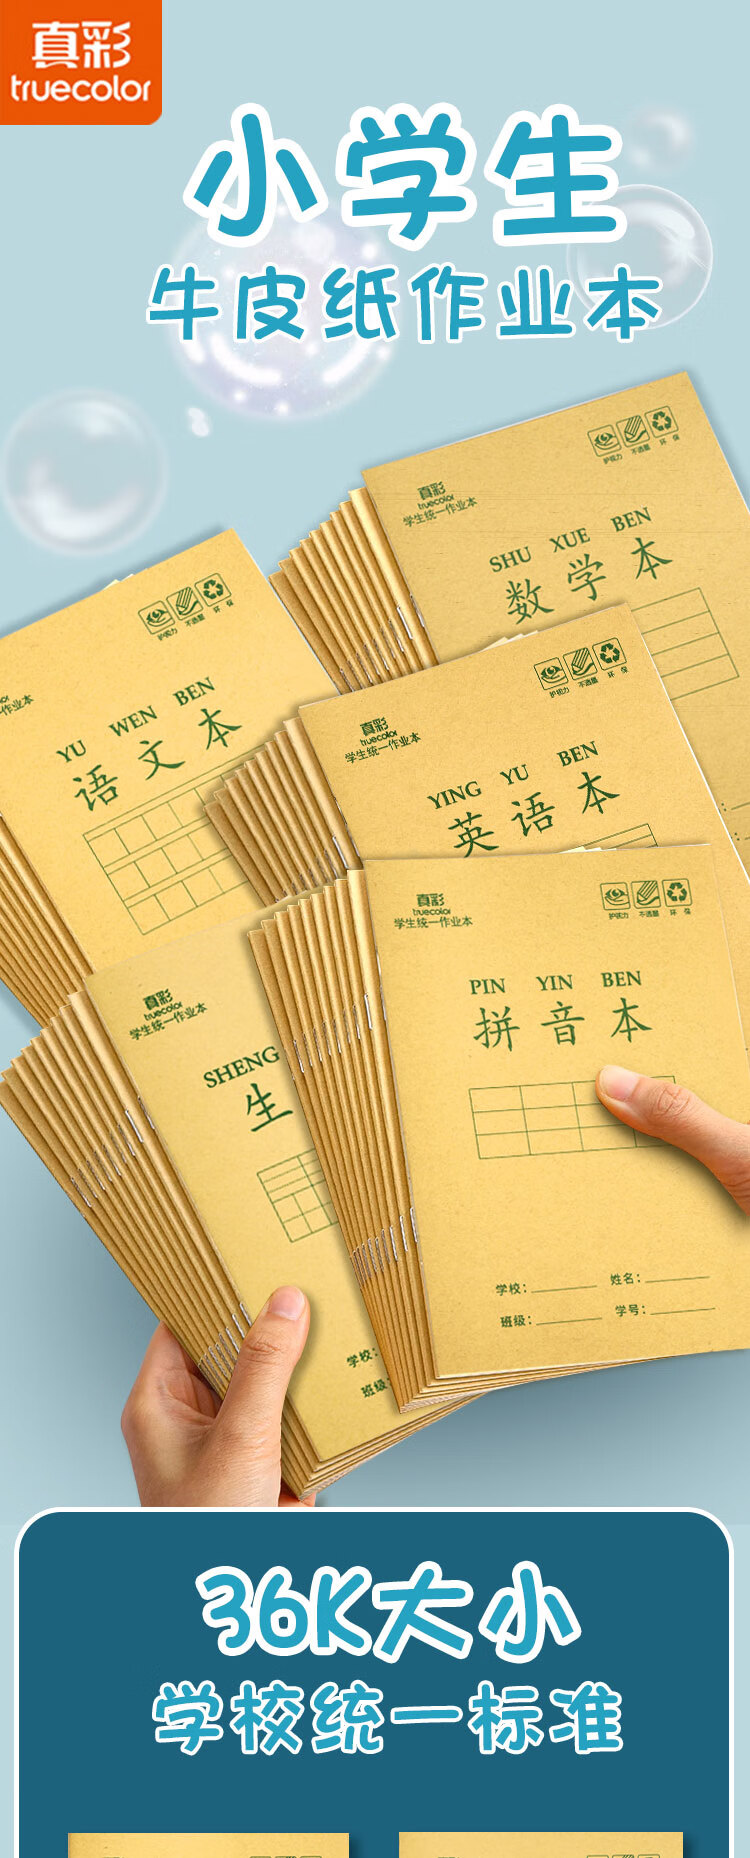 真彩
truecolor
小学生
牛皮纸作业本
护视力 不透墨 环保
真彩
truecolor
学生统一作业本
SHU XUE BEN
数学本
护视力 不透墨 环保
生作业本
YU WEN BEN
语文本
护视力 不透墨 环保
真彩
truecolor
学生统一作业本
YING YU BEN
英语本
护视力 不透墨 环保
真彩
truecolor
学生统一作业本
PIN YIN BEN
拼音本
学校：
姓名：
班级：
学号：
真彩
truecolor
学生统一作业本
SHENG
生
学校：
班级
36K大小
学校统一标准